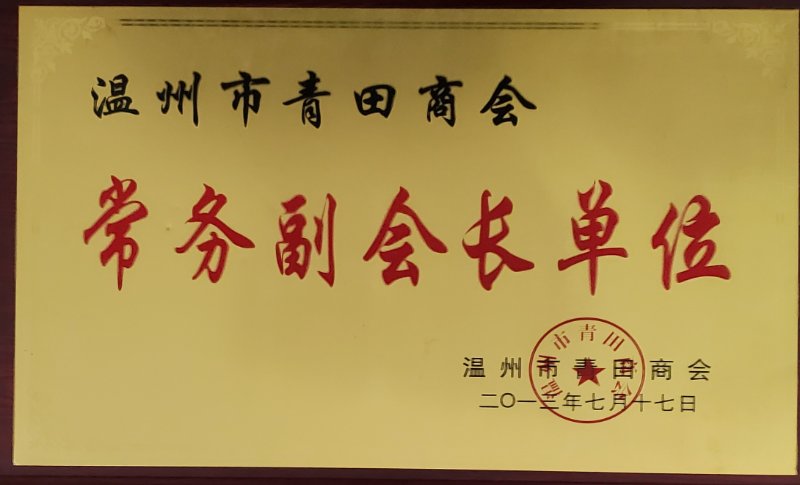 温州市青田商会
常务副会长单位
温州市青田商会
温州市青田商会
二〇一三年七月十七日